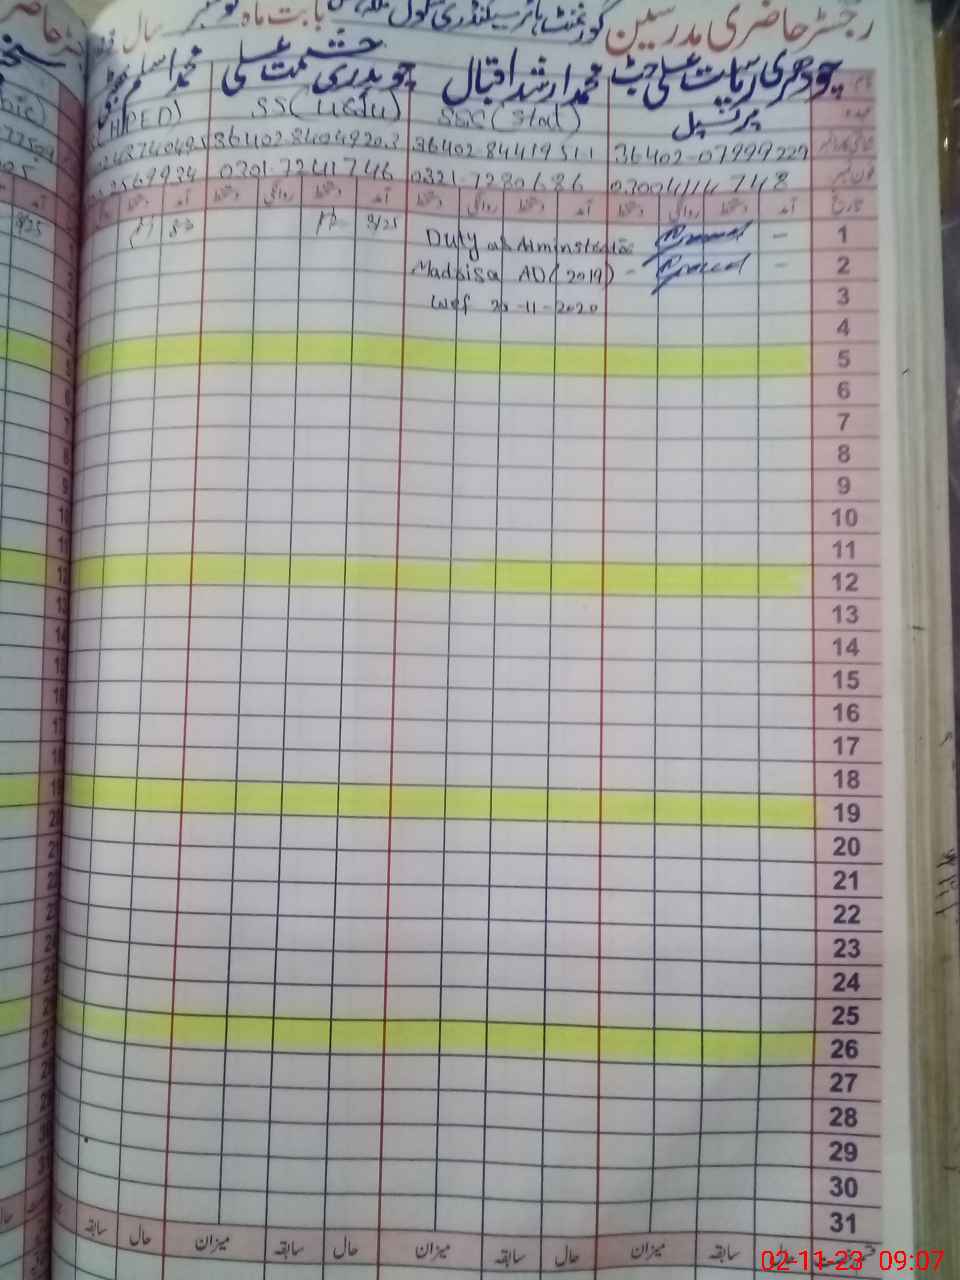 رجسٹر حاضری مدرسین گورنمنٹ ہائر سیکنڈری سکول بابت ماہ نومبر سال
چوہدری ریاست علی جٹ محمد ارشد اقبال چوہدری حشمت علی محمد اسلم
پرنسپل SSS (Stat) SS (Urdu) (HPED)
36402-07999229 36402 8441951 1 36402 84049203
0300 4114 748 0321.7280686 0301.7241746
تاریخ آمد دستخط روانگی دستخط آمد دستخط روانگی دستخط آمد دستخط روانگی دستخط آمد دستخط
1 Duty as Adminstrator 8/25
2 Madrisa AD (2019) -
3 wef 20-11-2020
4
5
6
7
8
9
10
11
12
13
14
15
16
17
18
19
20
21
22
23
24
25
26
27
28
29
30
31
حال سابقہ میزان حال سابقہ میزان حال سابقہ میزان حال سابقہ
02-11-23 09:07